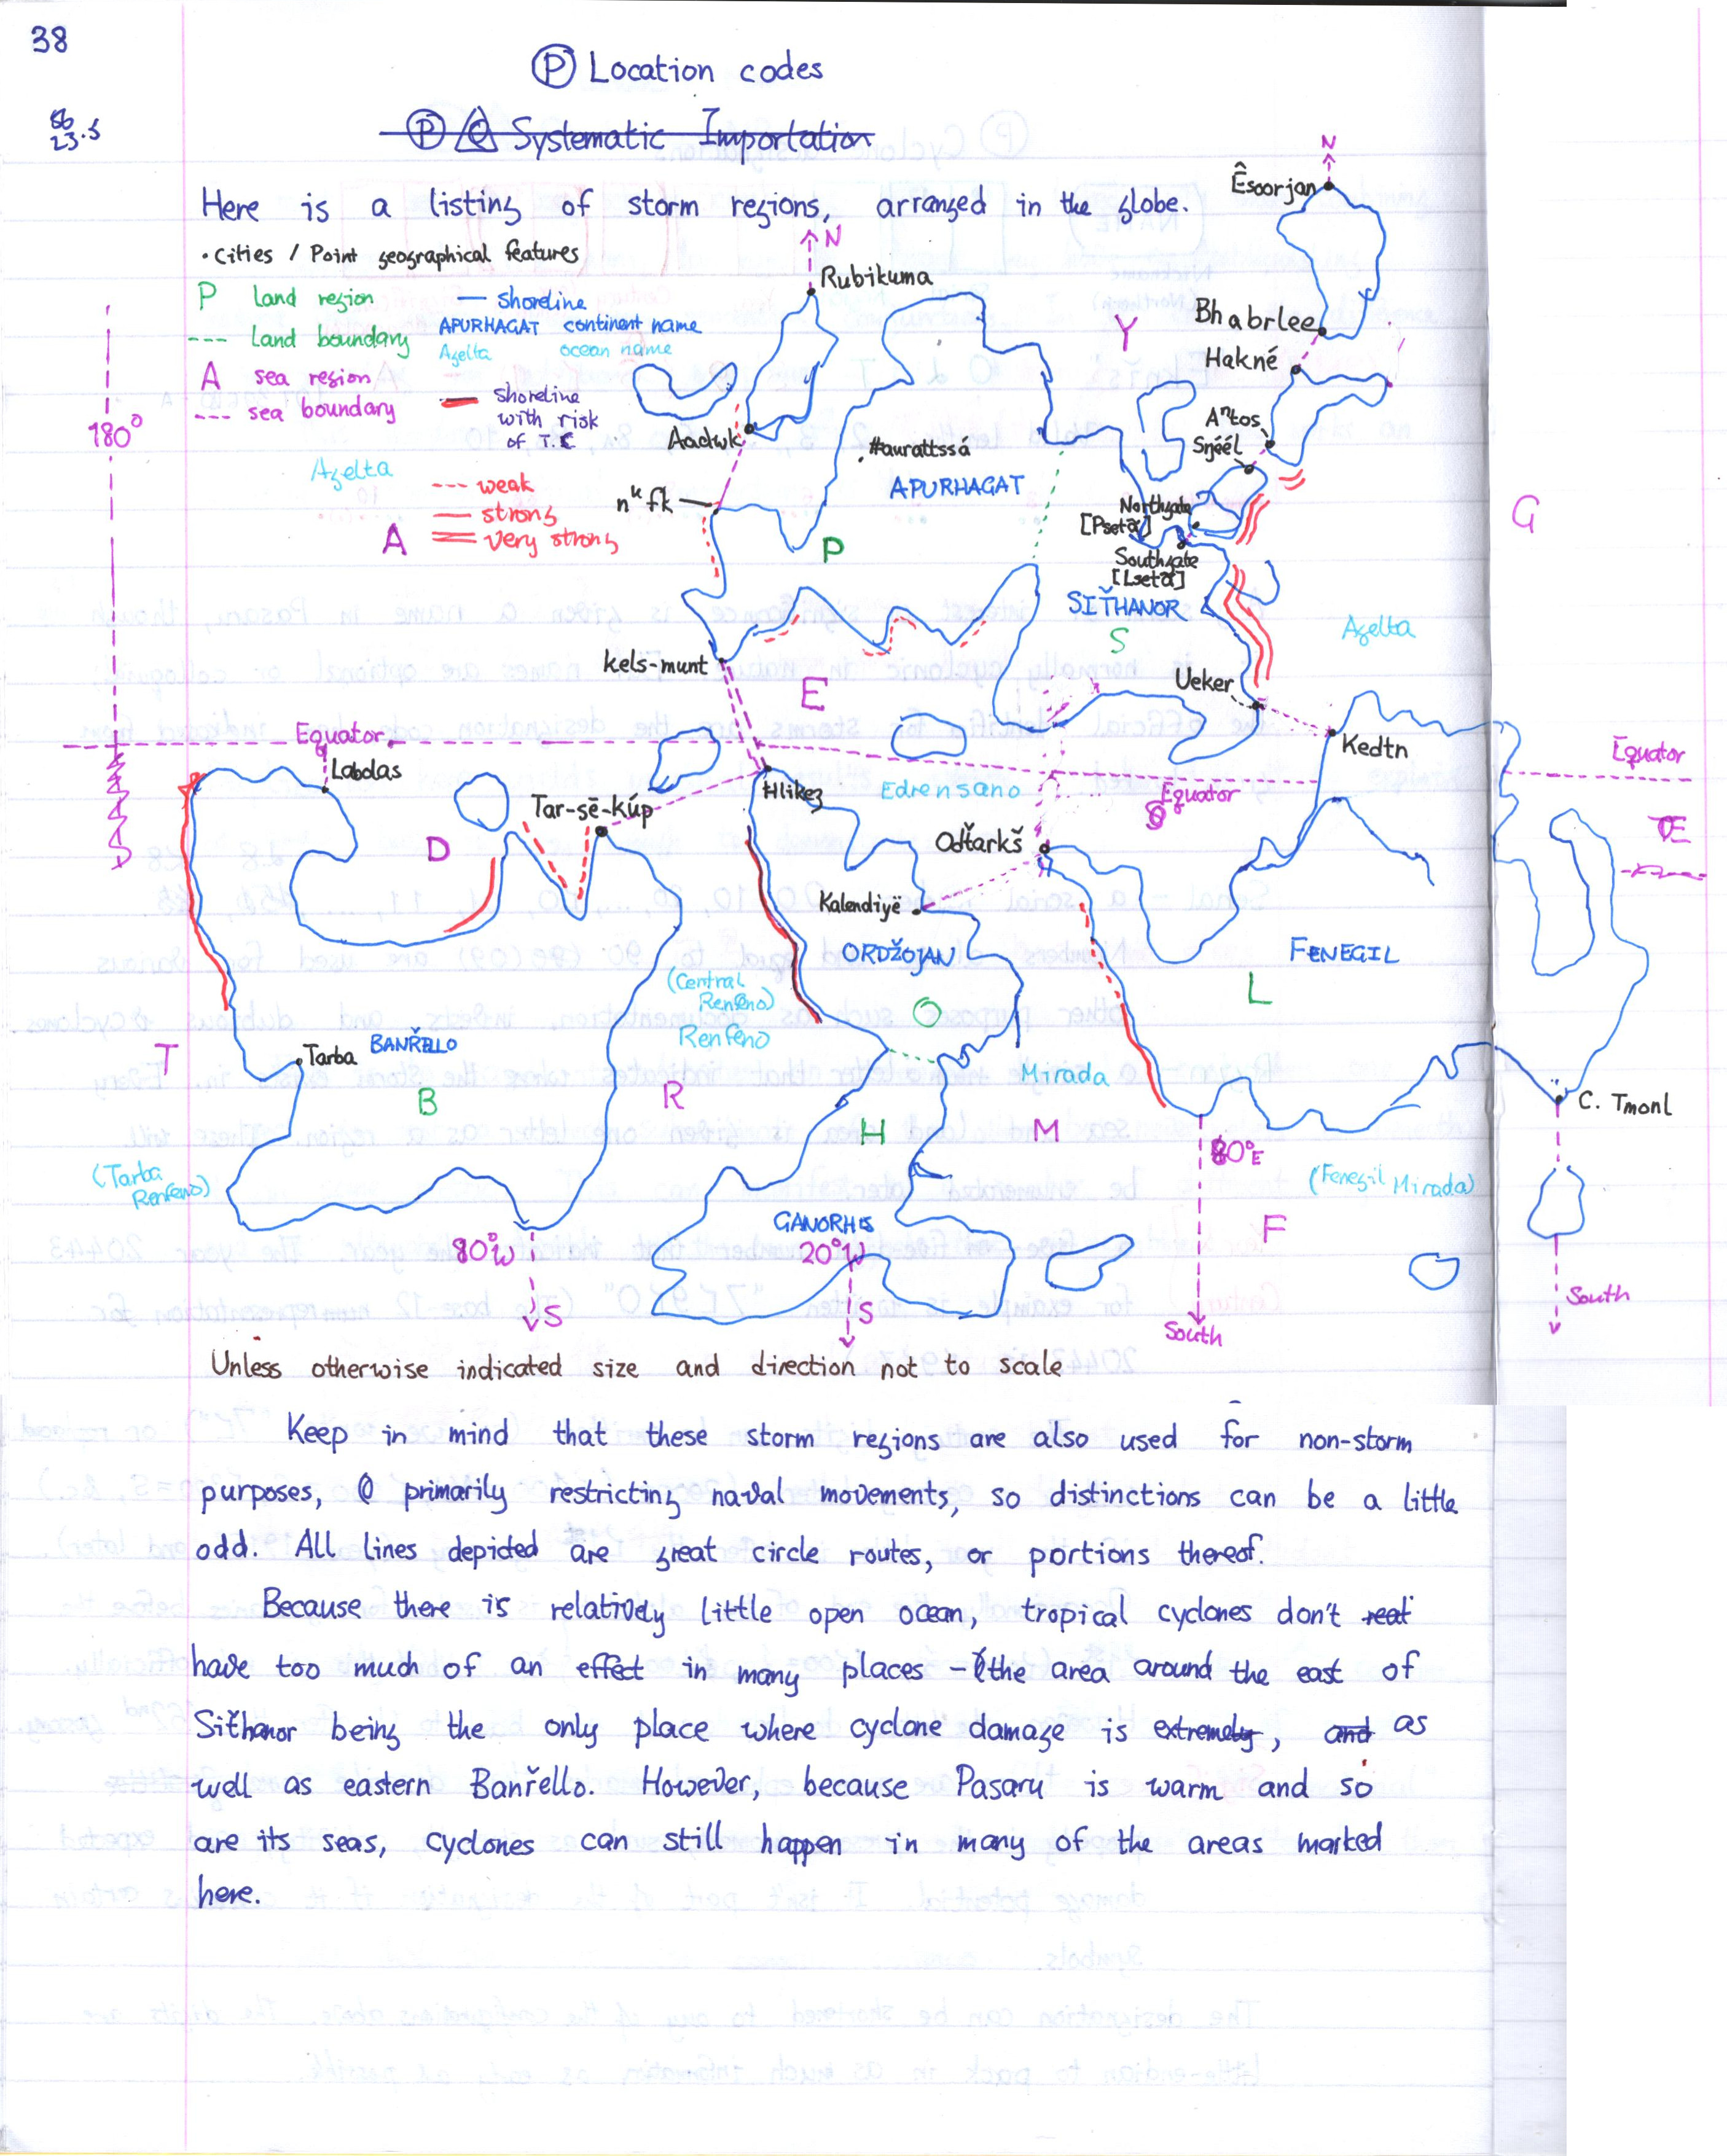 38
Ⓟ Location codes
23.5
Ⓟ Systematic Importation
Here is a listing of storm regions, arranged in the globe.
• Cities / Point geographical features
P land region
--- Land boundary
A sea region
--- sea boundary
— shoreline
APURHAGAT continent name
Azelta ocean name
— shoreline
with risk
of T.C
--- weak
— strong
= very strong
180°
Azelta
A
N
Rubikuma
Aadwk
nᵘfk
Haurattssá
APURHAGAT
P
N
Êsoorjan
Y
Bhabrlee
Hakné
Aⁿtos
Sŋéél
Northgate
Southgate
G
SIŤHANOR
S
Azelta
Kels-munt
E
Ueker
Kedtn
Equator
Equator
Equator
Labdas
Tar-sē-kúp
Hlikez
Edrensano
D
Odťarkš
Kalendiyë
ORDŽOJAN
FENEGIL
L
(Central
Renfeno)
O
Renfeno
Tarba
BANŘELLO
T
B
R
H
Mirada
M
C. Tmonl
(Tarba
Renfeno)
80°E
(Fenegil Mirada)
GANORHIS
F
80°W
20°W
S
S
South
South
Unless otherwise indicated size and direction not to scale
Keep in mind that these storm regions are also used for non-storm
purposes, primarily restricting naval movements, so distinctions can be a little
odd. All lines depicted are great circle routes, or portions thereof.
Because there is relatively little open ocean, tropical cyclones don't
have too much of an effect in many places – the area around the east of
Siťhanor being the only place where cyclone damage is extremely, and as
well as eastern Banřello. However, because Pasaru is warm and so
are its seas, cyclones can still happen in many of the areas marked
here.